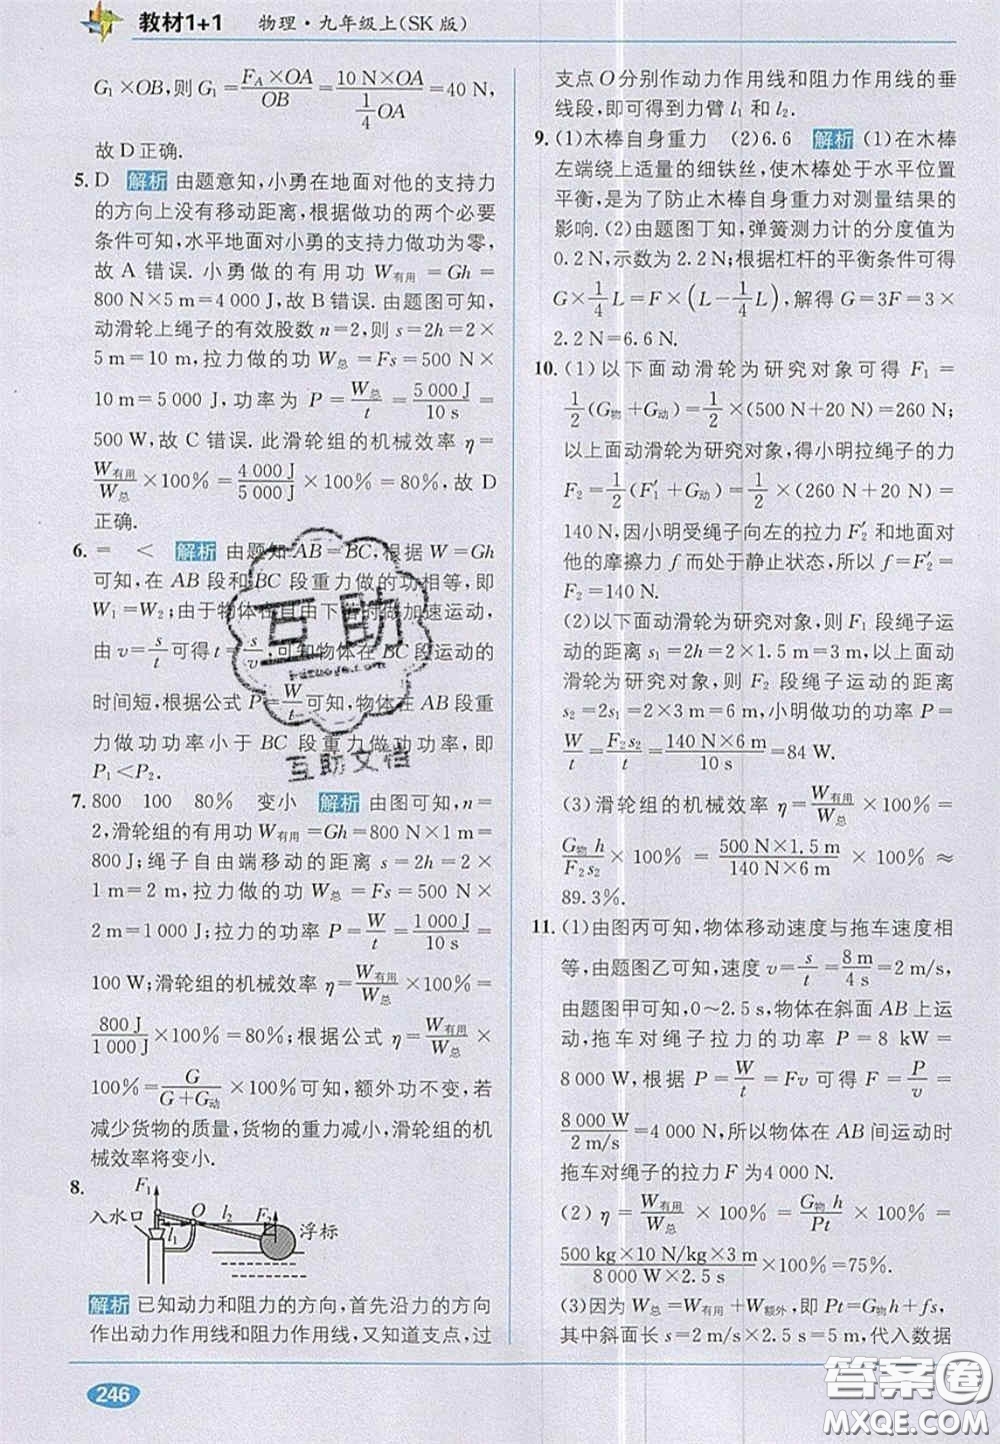 教材1+1 物理·九年级上(SK版)
G₁×OB,则 G₁=F_A×OA/OB=10 N×OA/(1/4 OA)=40 N,
故 D 正确.
5. D 解析 由题意知,小勇在地面对他的支持力
的方向上没有移动距离,根据做功的两个必要
条件可知,水平地面对小勇的支持力做功为零,
故 A 错误. 小勇做的有用功 W有用=Gh=
800 N×5 m=4 000 J,故 B 错误. 由题图可知,
动滑轮上绳子的有效股数 n=2,则 s=2h=2×
5 m=10 m,拉力做的功 W总=Fs=500 N×
10 m=5 000 J,功率为 P=W总/t=5 000 J/10 s=
500 W,故 C 错误. 此滑轮组的机械效率 η=
W有用/W总×100%=4 000 J/5 000 J×100%=80%,故 D
正确.
6. = < 解析 由题知 AB=BC,根据 W=Gh
可知,在 AB 段和 BC 段重力做功的功相等,即
W₁=W₂;由于物体在自由下落时做加速运动,
由 v=s/t 可得 t=s/v,可知物体在 BC 段运动的
时间短,根据公式 P=W/t 可知,物体在 AB 段重
力做功功率小于 BC 段重力做功功率,即
P₁<P₂.
7. 800 100 80% 变小 解析 由图可知,n=
2,滑轮组的有用功 W有用=Gh=800 N×1 m=
800 J;绳子自由端移动的距离 s=2h=2×
1 m=2 m,拉力做的功 W总=Fs=500 N×
2 m=1 000 J;拉力的功率 P=W/t=1 000 J/10 s=
100 W;滑轮组的机械效率 η=W有用/W总×100%=
800 J/1 000 J×100%=80%;根据公式 η=W有用/W总×
100%=G/(G+G动)×100%可知,额外功不变,若
减少货物的质量,货物的重力减小,滑轮组的机
械效率将变小.
8.
F₁
入水口 O l₂ F₂ 浮标
l₁
解析 已知动力和阻力的方向,首先沿力的方向
作出动力作用线和阻力作用线,又知道支点,过
支点 O 分别作动力作用线和阻力作用线的垂
线段,即可得到力臂 l₁ 和 l₂.
9. (1)木棒自身重力 (2)6.6 解析 (1)在木棒
左端绕上适量的细铁丝,使木棒处于水平位置
平衡,是为了防止木棒自身重力对测量结果的
影响. (2)由题图丁知,弹簧测力计的分度值为
0.2 N,示数为 2.2 N;根据杠杆的平衡条件可得
G×1/4 L=F×(L-1/4 L),解得 G=3F=3×
2.2 N=6.6 N.
10. (1)以下面动滑轮为研究对象可得 F₁=
1/2(G物+G动)=1/2×(500 N+20 N)=260 N;
以上面动滑轮为研究对象,得小明拉绳子的力
F₂=1/2(F₁′+G动)=1/2×(260 N+20 N)=
140 N,因小明受绳子向左的拉力 F₂′和地面对
他的摩擦力 f 而处于静止状态,所以 f=F₂′=
F₂=140 N.
(2)以下面动滑轮为研究对象,则 F₁ 段绳子运
动的距离 s₁=2h=2×1.5 m=3 m;以上面动
滑轮为研究对象,则 F₂ 段绳子运动的距离
s₂=2s₁=2×3 m=6 m,小明做功的功率 P=
W/t=F₂s₂/t=140 N×6 m/10 s=84 W.
(3)滑轮组的机械效率 η=W有用/W总×100%=
G物h/F₂s₂×100%=500 N×1.5 m/140 N×6 m×100%≈
89.3%.
11. (1)由图丙可知,物体移动速度与拖车速度相
等,由题图乙可知,速度 v=s/t=8 m/4 s=2 m/s,
由题图甲可知,0~2.5 s,物体在斜面 AB 上运
动,拖车对绳子拉力的功率 P=8 kW=
8 000 W,根据 P=W/t=Fv 可得 F=P/v=
8 000 W/2 m/s=4 000 N,所以物体在 AB 间运动时
拖车对绳子的拉力 F 为 4 000 N.
(2) η=W有用/W总×100%=G物h/Pt×100%=
500 kg×10 N/kg×3 m/8 000 W×2.5 s×100%=75%.
(3)因为 W总=W有用+W额外,即 Pt=G物h+fs,
其中斜面长 s=2 m/s×2.5 s=5 m,代入数据
246
互助
互助文档
答案圈
MXQE.COM